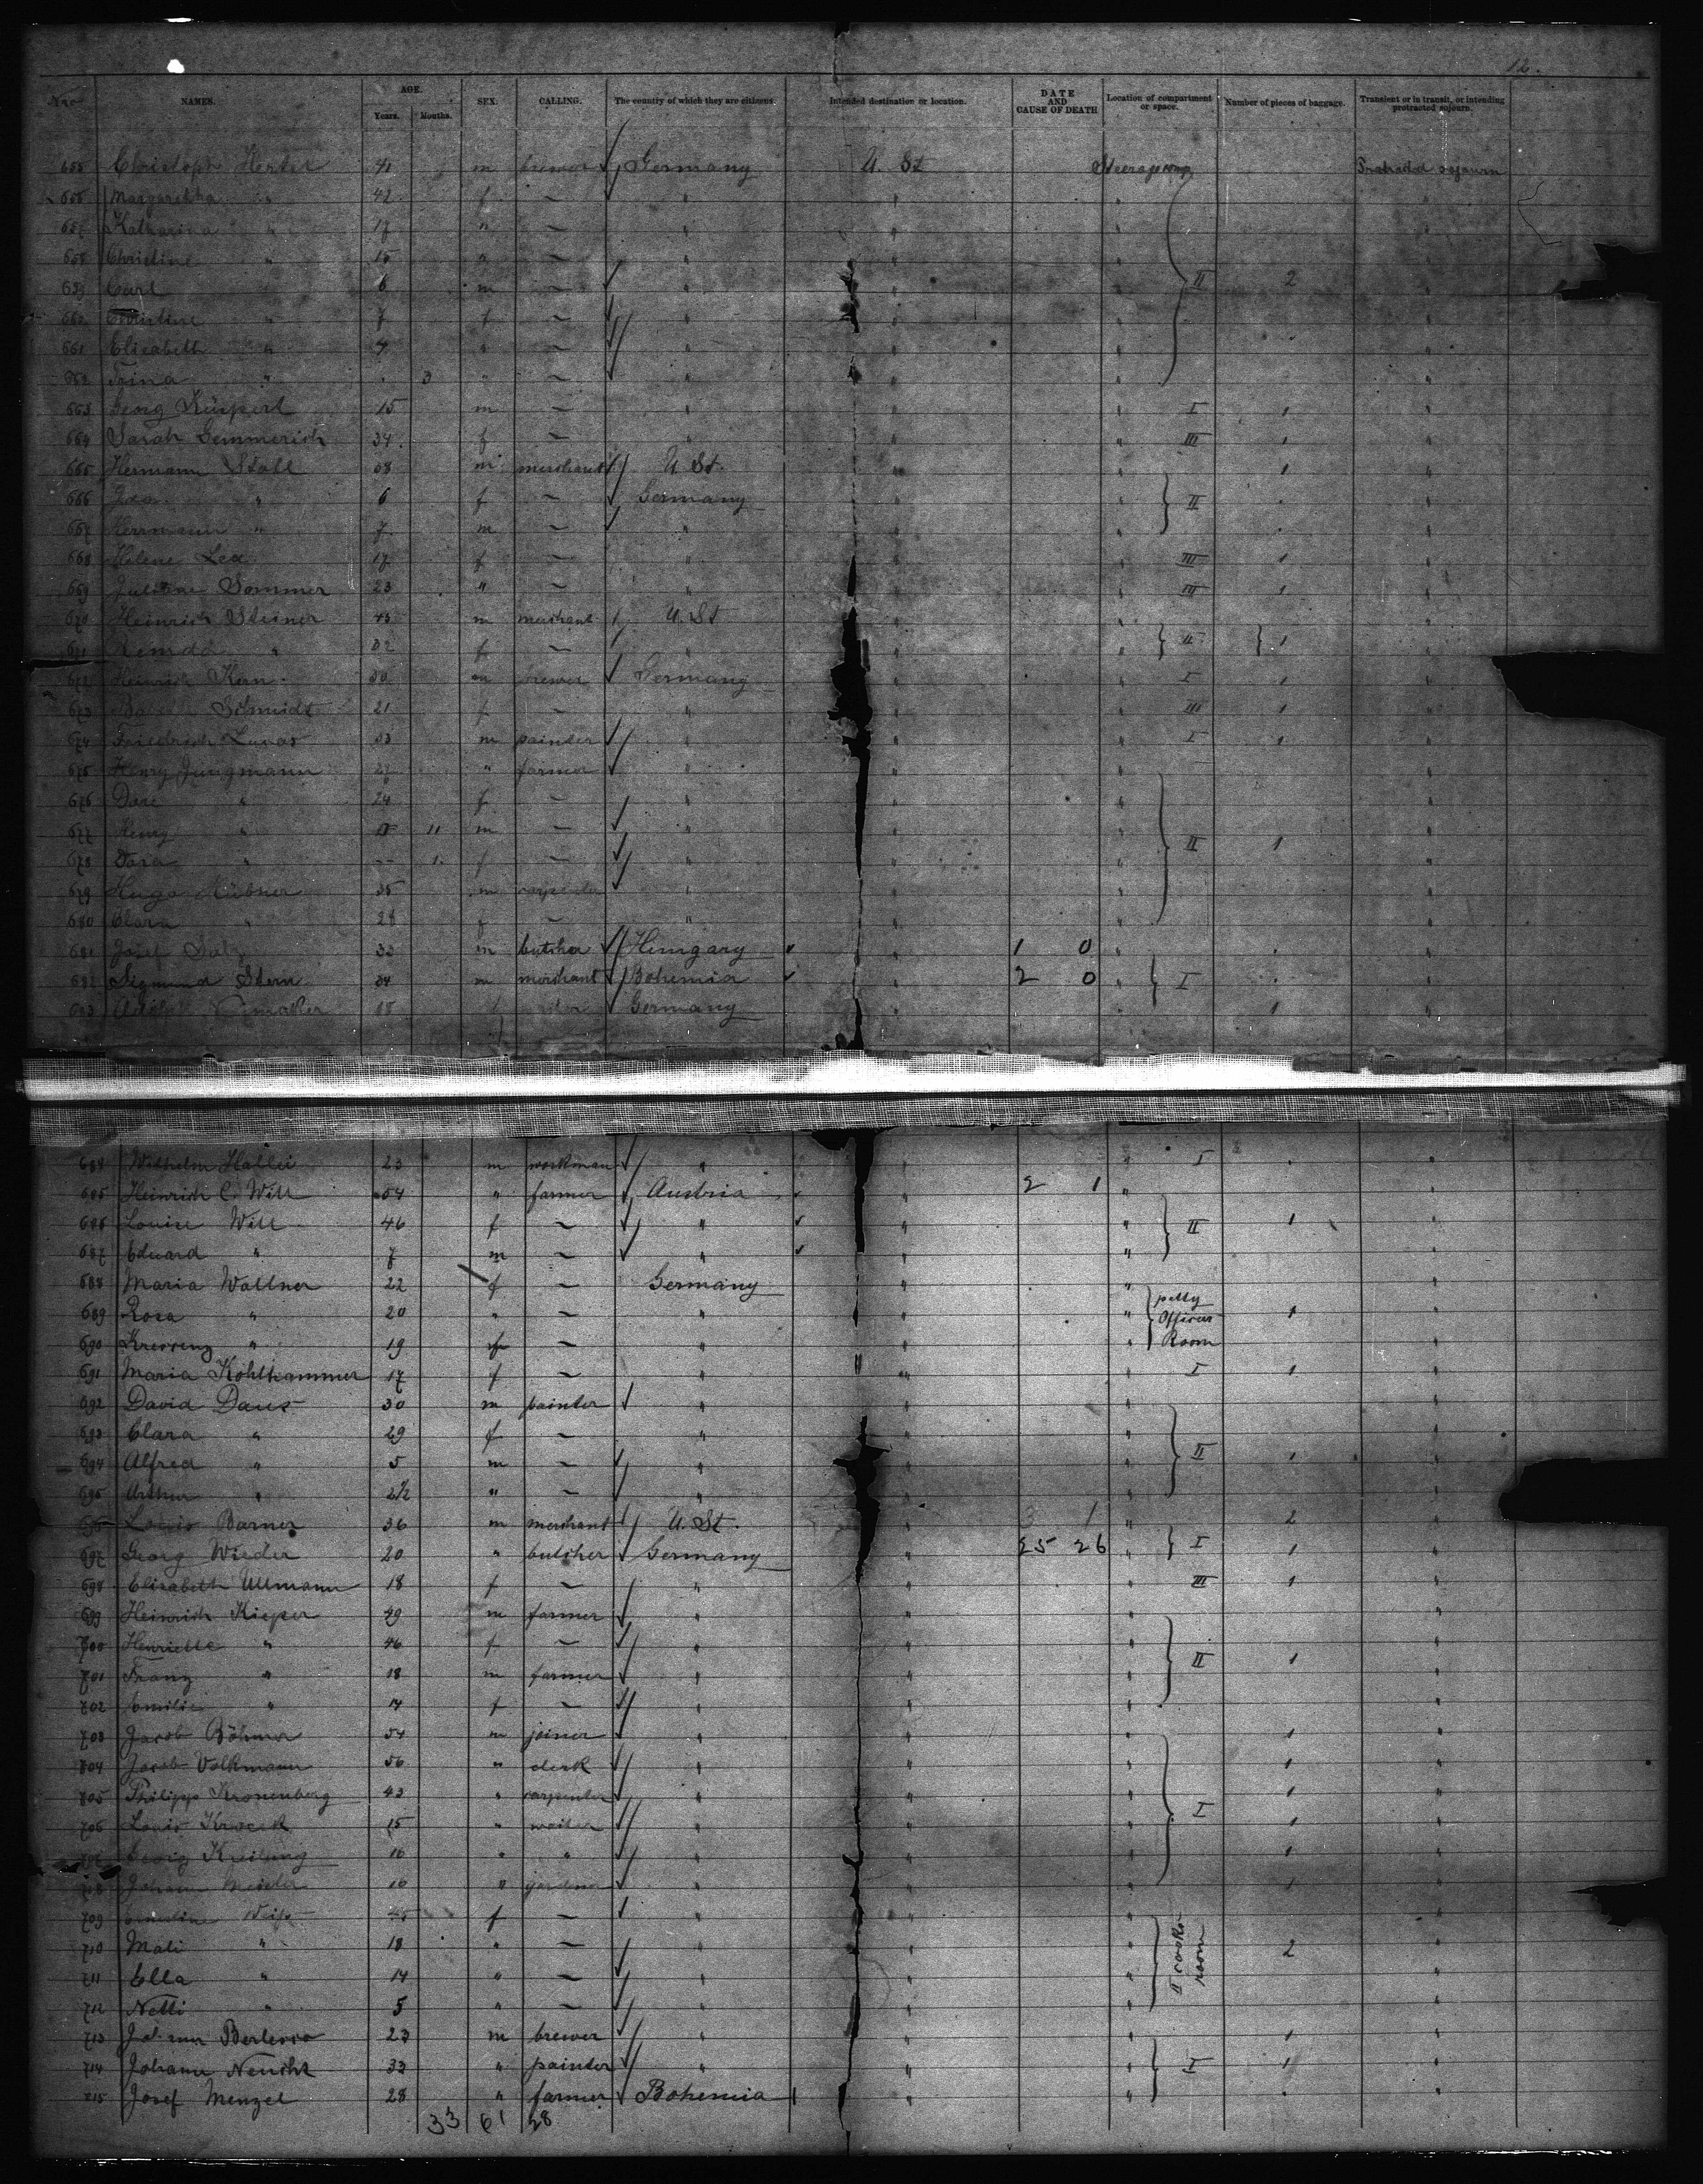 12.
Nro NAMES. AGE. Years. Months. SEX. CALLING. The country of which they are citizens. Intended destination or location. DATE AND CAUSE OF DEATH Location of compartment or space. Number of pieces of baggage. Transient or in transit, or intending protracted sojourn.
655 Christoph Hertel 41 m brewer Germany U. St Steerage Protracted sojourn
656 Margaretha " 42 f — " " " "
657 Katharina " 17 " — " " " "
658 Christine " 15 " — " " " "
659 Carl " 6 m — " " " II 2 "
660 Christine " 7 f — " " " "
661 Elisabeth " 4 " — " " " "
662 " 3 " — " " " "
663 Georg 15 m — " " " I 1 "
664 Sarah Gemmerich 34 f — " " " III 1 "
665 Hermann Stahl 38 m merchant U St. " " 1 "
666 " 6 f — Germany " " II "
667 Herrmann " 7 m — " " " "
668 Helene Lea 17 f — " " " III 1 "
669 Juliane Sommer 23 " — " " " III 1 "
670 Heinrich Steiner 45 m merchant U. St " " "
671 " 32 f — " " " II 1 "
672 Heinrich Kern 30 m brewer Germany " " I 1 "
673 Schmidt 21 f — " " " III 1 "
674 Friedrich 33 m painter " " " I 1 "
675 Henry Jungmann 27 " farmer " " " "
676 " 24 f — " " " "
677 Henry " 11 m — " " " II 1 "
678 Dora " — 1 f — " " " "
679 Hugo Hübner 35 m carpenter " " " "
680 Clara " 28 f — " " " "
681 Josef 32 m butcher Hungary " 1 0 " "
682 Sigmund Stern 34 m merchant Bohemia " 2 0 " I "
683 Adolf Germany " " 1 "
684 Wilhelm 23 m workman " " " I "
685 Heinrich C. Will 54 " farmer Austria " 2 1 " "
686 Louise Will 46 f — " " " II 1 "
687 Eduard " 7 m — " " " "
688 Maria Wallner 22 f — Germany " " petty "
689 Rosa " 20 " — " " " Officers 1 "
690 Kreszenz " 19 f — " " " Room "
691 Maria Kohlhammer 17 f — " " " I 1 "
692 David Daus 30 m painter " " " "
693 Clara " 29 f — " " " "
694 Alfred " 5 m — " " " II 1 "
695 Arthur " 2½ " — " " " "
696 Louis Barner 36 m merchant U. St. " 3 1 " 2 "
697 Georg Wieder 20 " butcher Germany " 25 26 " I 1 "
698 Elisabeth Ullmann 18 f — " " " III 1 "
699 Heinrich Kieper 49 m farmer " " " "
700 Henriette " 46 f — " " " "
701 Franz " 18 m farmer " " " II 1 "
702 Emilie " 14 f — " " " "
703 Jacob Böhmer 54 m joiner " " " 1 "
704 Jacob Volkmann 56 " clerk " " " 1 "
705 Philipp Kronenberg 43 " carpenter " " " 1 "
706 Louis 15 " waiter " " " I 1 "
707 Georg 16 " " " " " 1 "
708 Johann 16 " gardner " " " 1 "
709 Ernestine Weiß 45 f — " " " "
710 Mali " 18 " — " " " II cooks room 2 "
711 Ella " 14 " — " " " "
712 Netti " 5 " — " " " "
713 Johann 23 m brewer " " " 1 "
714 Johann 33 " painter " " " I 1 "
715 Josef Menzel 28 " farmer Bohemia " " "
33 61 28